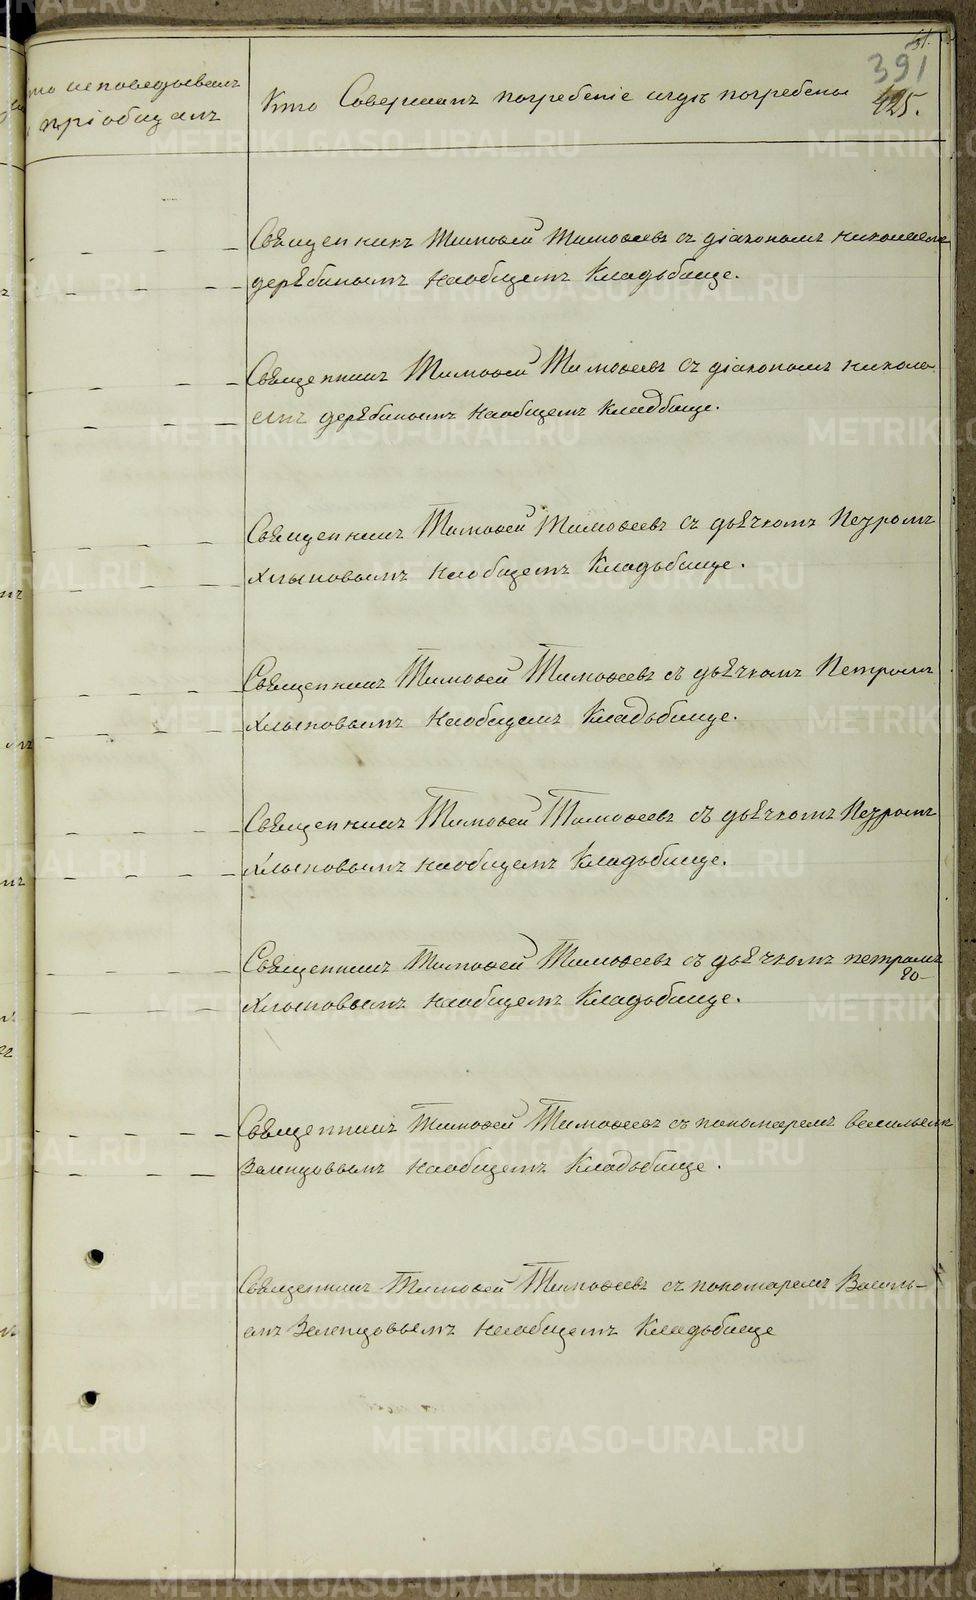 51.
391
425.
кто исповедывалъ
пріобщалъ
Кто Совершалъ погребеніе игдѣ погребены
Священникъ Тимофей Тимофеевъ съ діакономъ николаемъ
дерѣбинымъ наобщемъ Кладьбище.
Священникъ Тимофей Тимофеевъ съ діакономъ никола
емъ дерѣбинымъ наобщемъ кладбище.
Священникъ Тимофей Тимофеевъ съ дьѣчкомъ Петромъ
Хлыновымъ наобщемъ Кладьбище.
Священникъ Тимофей Тимофеевъ съ дьѣчкомъ Петромъ
Хлыновымъ наобщемъ Кладьбище.
Священникъ Тимофей Тимофеевъ съ дьѣчкомъ Петромъ
Хлыновымъ наобщемъ Кладьбище.
Священникъ Тимофей Тимофеевъ съ дьѣчкомъ петромъ
Хлыновымъ наобщемъ Кладьбище.
Священникъ Тимофей Тимофеевъ съ пономаремъ васильемъ
Зеленцовымъ наобщемъ Кладьбище.
Священникъ Тимофей Тимофеевъ съ пономаремъ Василь-
емъ Зеленцовымъ наобщемъ Кладьбище
METRIKI.GASO-URAL.RU